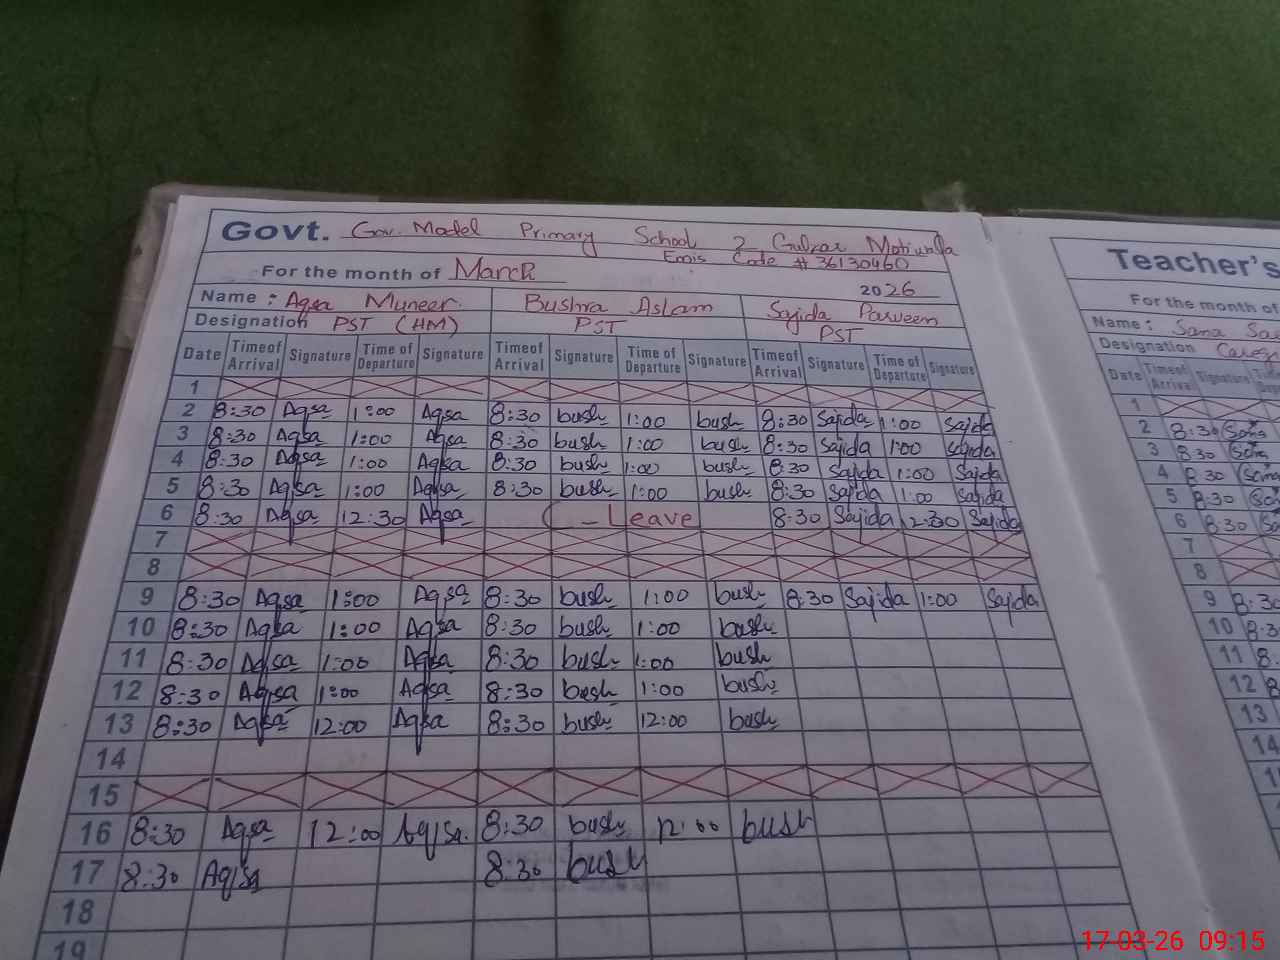 Govt. Gov. Model Primary School 2 Gulzar Motiwala
Emis Code # 36130460
For the month of March 2026
Name : Aqsa Muneer Bushra Aslam Sajida Parveen
Designation PST (HM) PST PST
Date Time of Arrival Signature Time of Departure Signature Time of Arrival Signature Time of Departure Signature Time of Arrival Signature Time of Departure Signature
1
2 8:30 Aqsa 1:00 Aqsa 8:30 bush 1:00 bush 8:30 Sajida 1:00 Sajida
3 8:30 Aqsa 1:00 Aqsa 8:30 bush 1:00 bush 8:30 Sajida 1:00 Sajida
4 8:30 Aqsa 1:00 Aqsa 8:30 bush 1:00 bush 8:30 Sajida 1:00 Sajida
5 8:30 Aqsa 1:00 Aqsa 8:30 bush 1:00 bush 8:30 Sajida 1:00 Sajida
6 8:30 Aqsa 12:30 Aqsa C-Leave 8:30 Sajida 12:30 Sajida
7
8
9 8:30 Aqsa 1:00 Aqsa 8:30 bush 1:00 bush 8:30 Sajida 1:00 Sajida
10 8:30 Aqsa 1:00 Aqsa 8:30 bush 1:00 bush
11 8:30 Aqsa 1:00 Aqsa 8:30 bush 1:00 bush
12 8:30 Aqsa 1:00 Aqsa 8:30 bush 1:00 bush
13 8:30 Aqsa 12:00 Aqsa 8:30 bush 12:00 bush
14
15
16 8:30 Aqsa 12:00 Aqsa 8:30 bush 12:00 bush
17 8:30 Aqsa 8:30 bush
18
19
Teacher's
For the month of
Name : Sana
Designation
Date Time of Arrival Signature
1
2 8:30 Sana
3 8:30 Sana
4 8:30 Sana
5 8:30
6 8:30
7
8
9 8:30
10
11
12
13
14
17-03-26 09:15